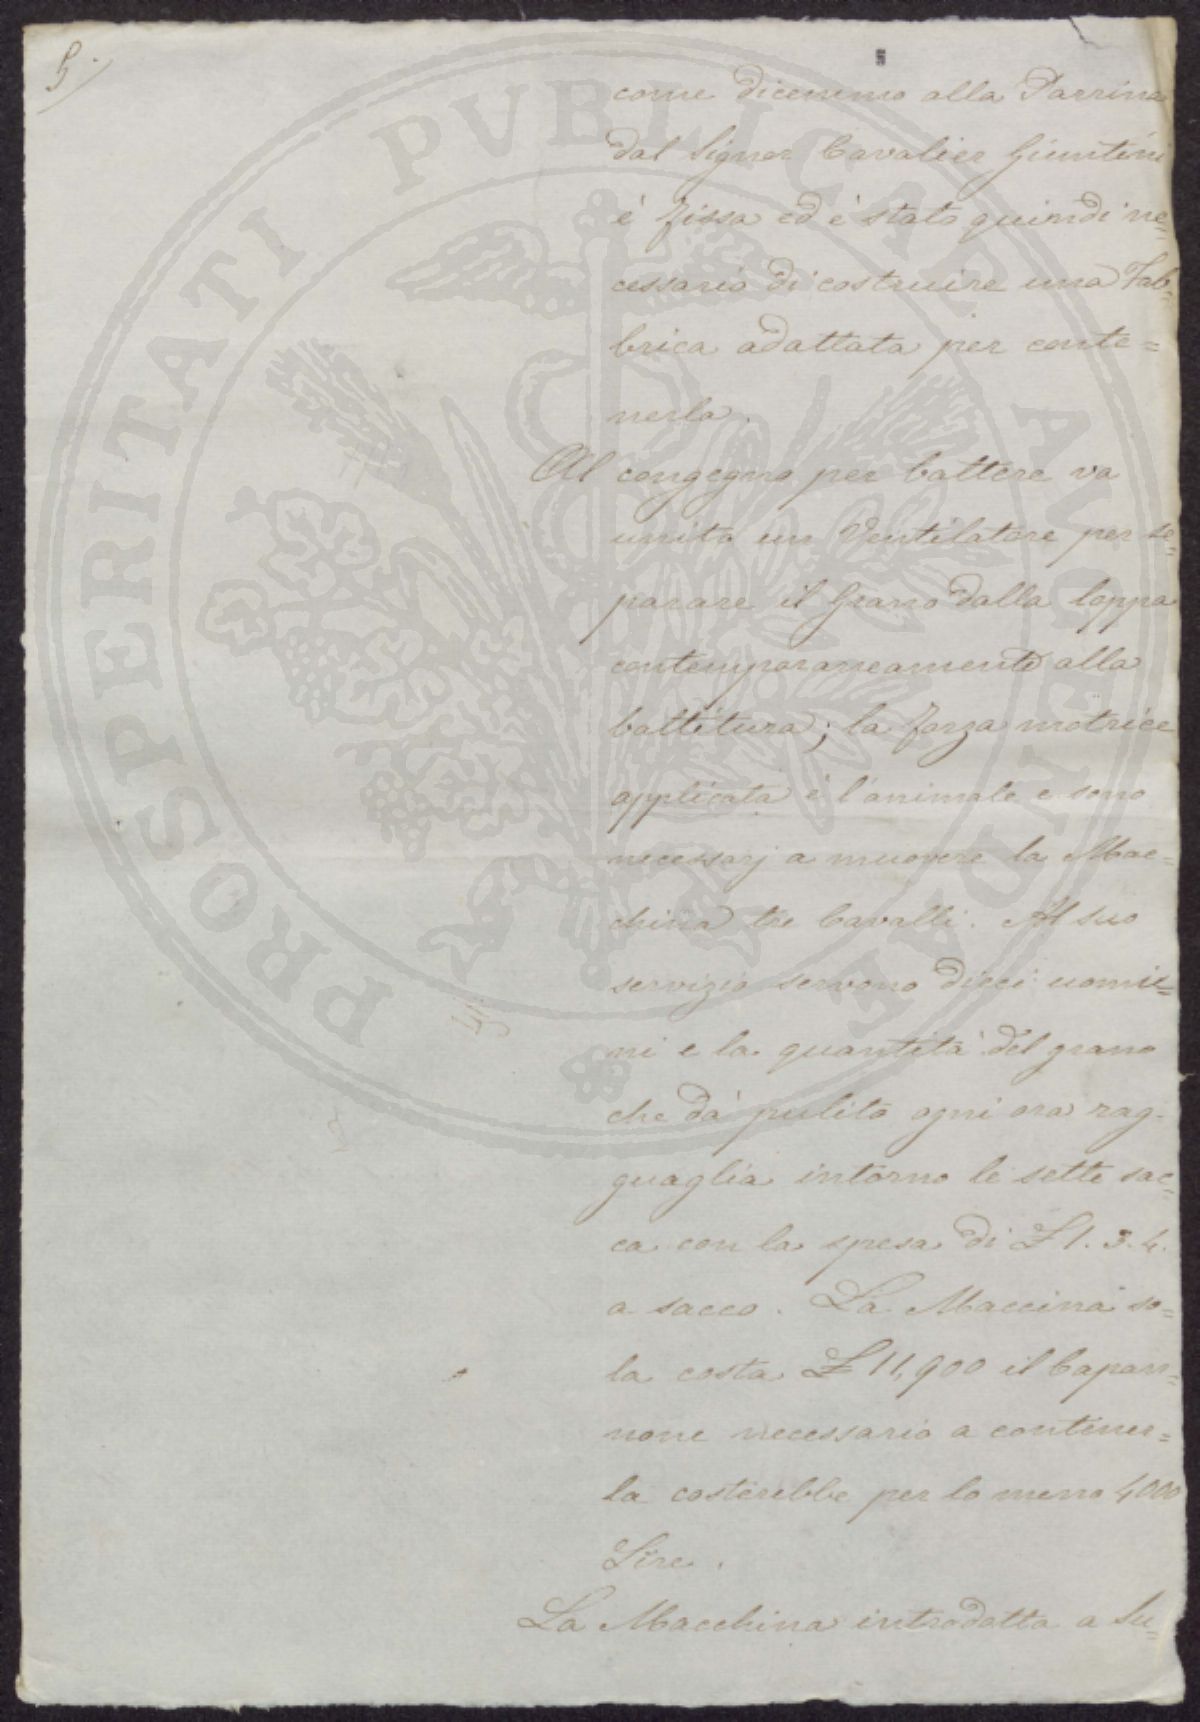 5.
come dicemmo alla Parrina
dal Signor Cavalier Giuntini
è fissa ed è stato quindi ne=
cessario di costruire una Fab=
brica adattata per conte=
nerla.
Al congegno per battere va
unito un Ventilatore per se=
parare il Grano dalla loppa
contemporaneamente alla
battitura; la forza motrice
applicata è l'animale e sono
necessarj a muovere la Mac=
china tre Cavalli. Al suo
servizio servono dieci uomi=
ni e la quantità del grano
che dà pulito ogni ora rag-
guaglia intorno le sette sac=
ca con la spesa di £ 1. 3. 4.
a sacco. La Maccina so=
la costa £ 11,900 il Capan=
none necessario a contener=
la costerebbe per lo meno 4000
Lire.
La Macchina introdotta a Su=
PROSPERITATI PUBLICAE AUGENDAE